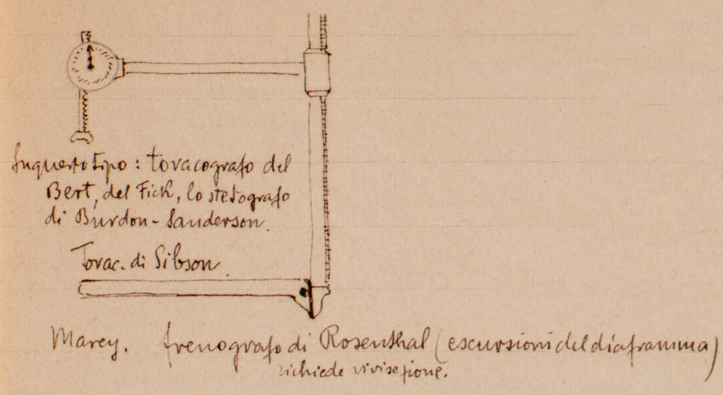 Su questo tipo: toracografo del
Bert, del Fick, lo stetografo
di Burdon-Sanderson.
Torac. di Sibson.
Marey. frenografo di Rosenthal (escursioni del diaframma)
richiede vivisezione.